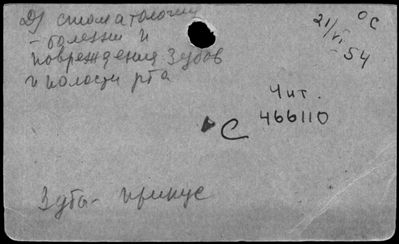 2) стоматологии
- болезни и
повреждения зубов
и полости рта
21/VI - 54
ОС
Чит.
466110
С
Зубы - прикус